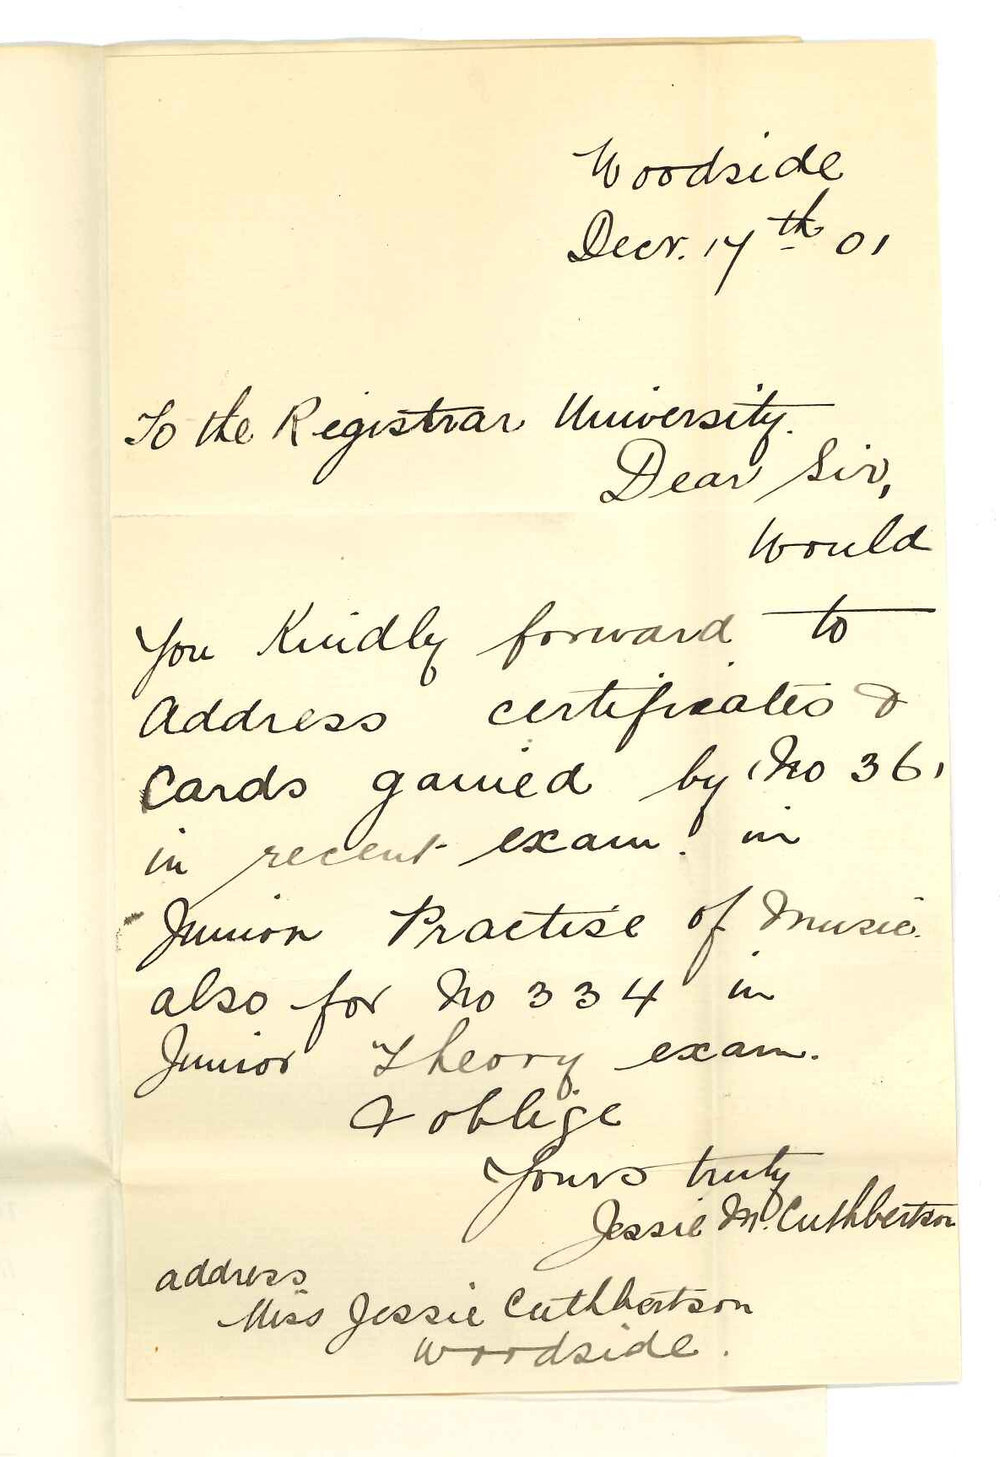 Woodside
Decr. 17th 01
To the Registrar University.
Dear Sir,
Would
You Kindly forward to
Address certificates &
Cards gained by No 361
in recent exam. in
Junior Practise of Music.
also for No 334 in
Junior Theory exam.
& oblige
Yours truly
Jessie M. Cuthbertson
address
Miss Jessie Cuthbertson
Woodside.